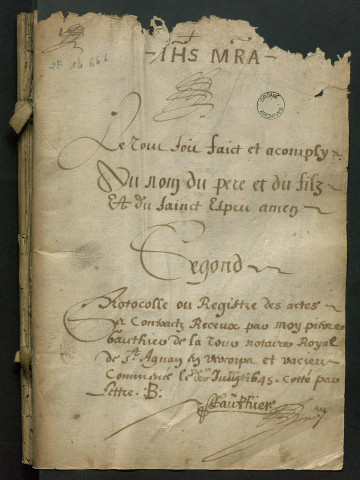 2E 14646
-IHS MRA-
DROME
ARCHIVES
Le tout soit faict et acomply
Au nom du pere et du filz
Et du sainct Esprit amen
Segond
Protocolle ou Registre des actes
et Contractz Receux par moy pierre
Gauthier de la tour notaire Royal
de St Agnan en vercorps et
Commence le Jullet 1645. cotté par
lettre .B.
Gauthier